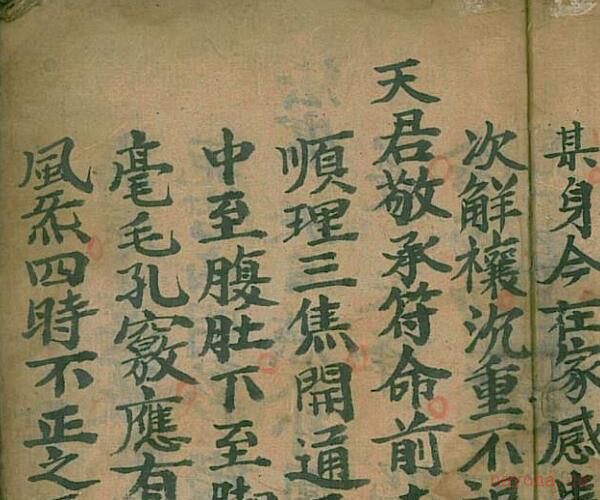 某身今在家感
次解禳沉重不
天君敬承符命前
順理三焦開通
中至腹肚下至
毫毛孔竅應有
風炁四時不正之